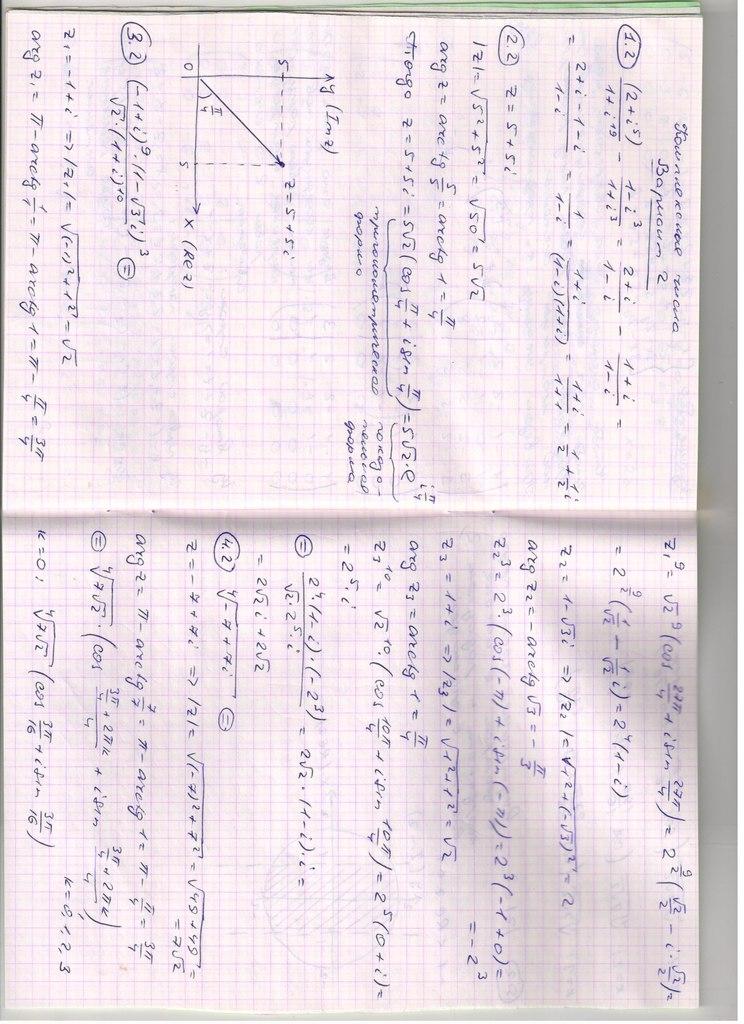 Комплексные числа
Вариант 2
1.2 (2+i⁵)/(1+i¹⁹) - (1-i³)/(1+i³) = (2+i)/(1-i) - (1+i)/(1-i) =
= (2+i-1-i)/(1-i) = 1/(1-i) = (1+i)/((1-i)(1+i)) = (1+i)/(1+1) = 1/2 + 1/2 i
2.2 z = 5+5i
|z| = √(5²+5²) = √50 = 5√2
arg z = arctg 5/5 = arctg 1 = π/4
Тогда z = 5+5i = 5√2 (cos π/4 + i sin π/4) = 5√2 · e^(i π/4)
тригонометрическая форма
показательная форма
y (Im z)
5
z = 5+5i
π/4
0
5
x (Re z)
3.2 ((-1+i)⁹ · (1-√3i)³)/(√2 · (1+i)¹⁰) =
z₁ = -1+i => |z₁| = √((-1)²+1²) = √2
arg z₁ = π - arctg 1/1 = π - arctg 1 = π - π/4 = 3π/4
z₁⁹ = √2⁹ (cos 27π/4 + i sin 27π/4) = 2^(9/2) (√2/2 - i · √2/2) =
= 2^(9/2) (1/√2 - 1/√2 i) = 2⁴(1-i)
z₂ = 1-√3i => |z₂| = √(1²+(-√3)²) = 2
arg z₂ = -arctg √3 = -π/3
z₂³ = 2³ · (cos(-π) + i sin(-π)) = 2³(-1+0) =
= -2³
z₃ = 1+i => |z₃| = √(1²+1²) = √2
arg z₃ = arctg 1 = π/4
z₃¹⁰ = √2¹⁰ · (cos 10π/4 + i sin 10π/4) = 2⁵(0+i) =
= 2⁵ · i
= (2⁴(1-i) · (-2³))/(√2 · 2⁵ · i) = 2√2 · (1-i) · i =
= 2√2 i + 2√2
4.2 ⁴√(-7+7i) =
z = -7+7i => |z| = √((-7)²+7²) = √(49+49) =
= 7√2
arg z = π - arctg 7/7 = π - arctg 1 = π - π/4 = 3π/4
= ⁴√(7√2) · (cos (3π/4+2πk)/4 + i sin (3π/4+2πk)/4),
k=0,1,2,3
k=0: ⁴√(7√2) (cos 3π/16 + i sin 3π/16)